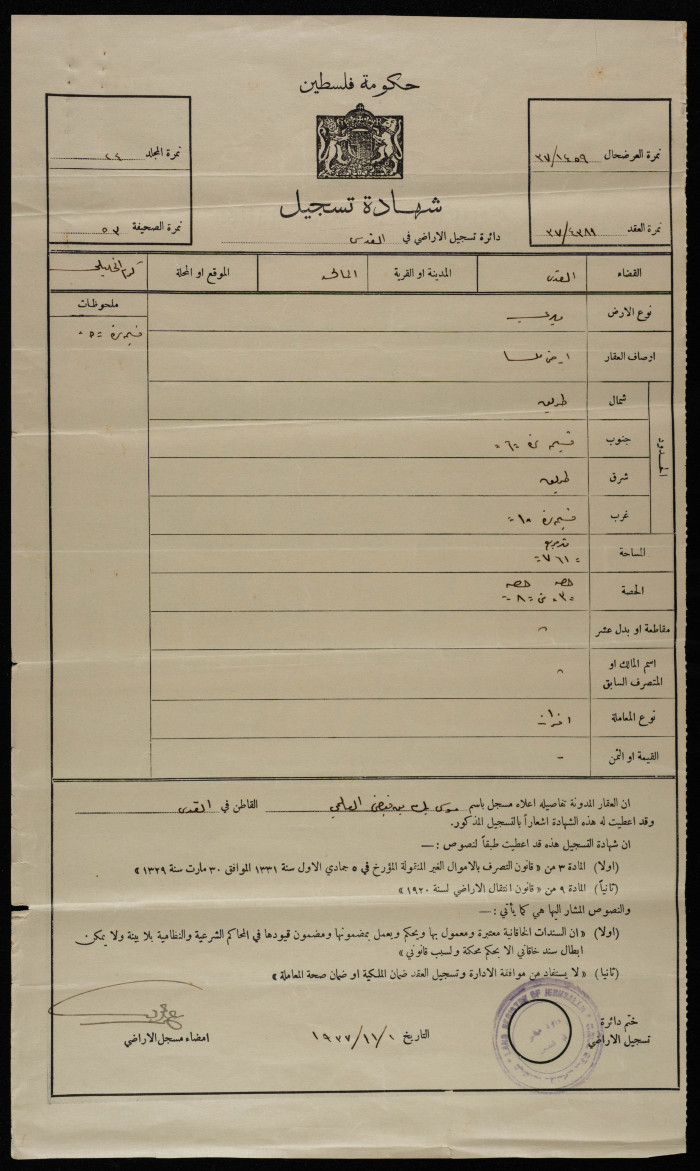 حكومة فلسطين
نمرة العرضحال ٣٧/١٤٥٩
نمرة العقد ٣٧/٤٣٨٩
نمرة المجلد ٢٤
نمرة الصحيفة ٥٣
شهادة تسجيل
دائرة تسجيل الاراضي في القدس
القضاء القدس المدينة او القرية المالحه الموقع او المحلة كرم الخليلي
ملحوظات
نوع الارض ميري
اوصاف العقار ارض
الحدود
شمال طريق
جنوب قسيمة نمرة ٦
شرق طريق
غرب قسيمة نمرة ١٠
المساحة
٧٦١
الحصة حصه حصه
٣ من ٨
مقاطعة او بدل عشر
اسم المالك او
المتصرف السابق
نوع المعاملة افراز
القيمة او الثمن -
ان العقار المدونة تفاصيله اعلاه مسجل باسم موسى بك بن فيضي العلمي القاطن في القدس
وقد اعطيت له هذه الشهادة اشعاراً بالتسجيل المذكور.
ان شهادة التسجيل هذه قد اعطيت طبقاً لنصوص :—
(اولا) المادة ٣ من « قانون التصرف بالاموال الغير المنقولة المؤرخ في ٥ جمادي الاول سنة ١٣٣١ الموافق ٣٠ مارت سنة ١٣٢٩ »
(ثانياً) المادة ٩ من « قانون انتقال الاراضي لسنة ١٩٢٠ »
والنصوص المشار اليها هي كما يأتي :—
(اولا) « ان السندات الخاقانية معتبرة ومعمول بها ويحكم ويعمل بمضمونها ومضمون قيودها في المحاكم الشرعية والنظامية بلا بينة ولا يمكن
ابطال سند خاقاني الا بحكم محكمة ولسبب قانوني »
(ثانيا) « لا يستفاد من موافقة الادارة وتسجيل العقد ضمان الملكية او ضمان صحة المعاملة »
ختم دائرة
تسجيل الاراضي
LAND REGISTRY OF JERUSALEM
التاريخ ١٩٣٧/١١/١
امضاء مسجل الاراضي